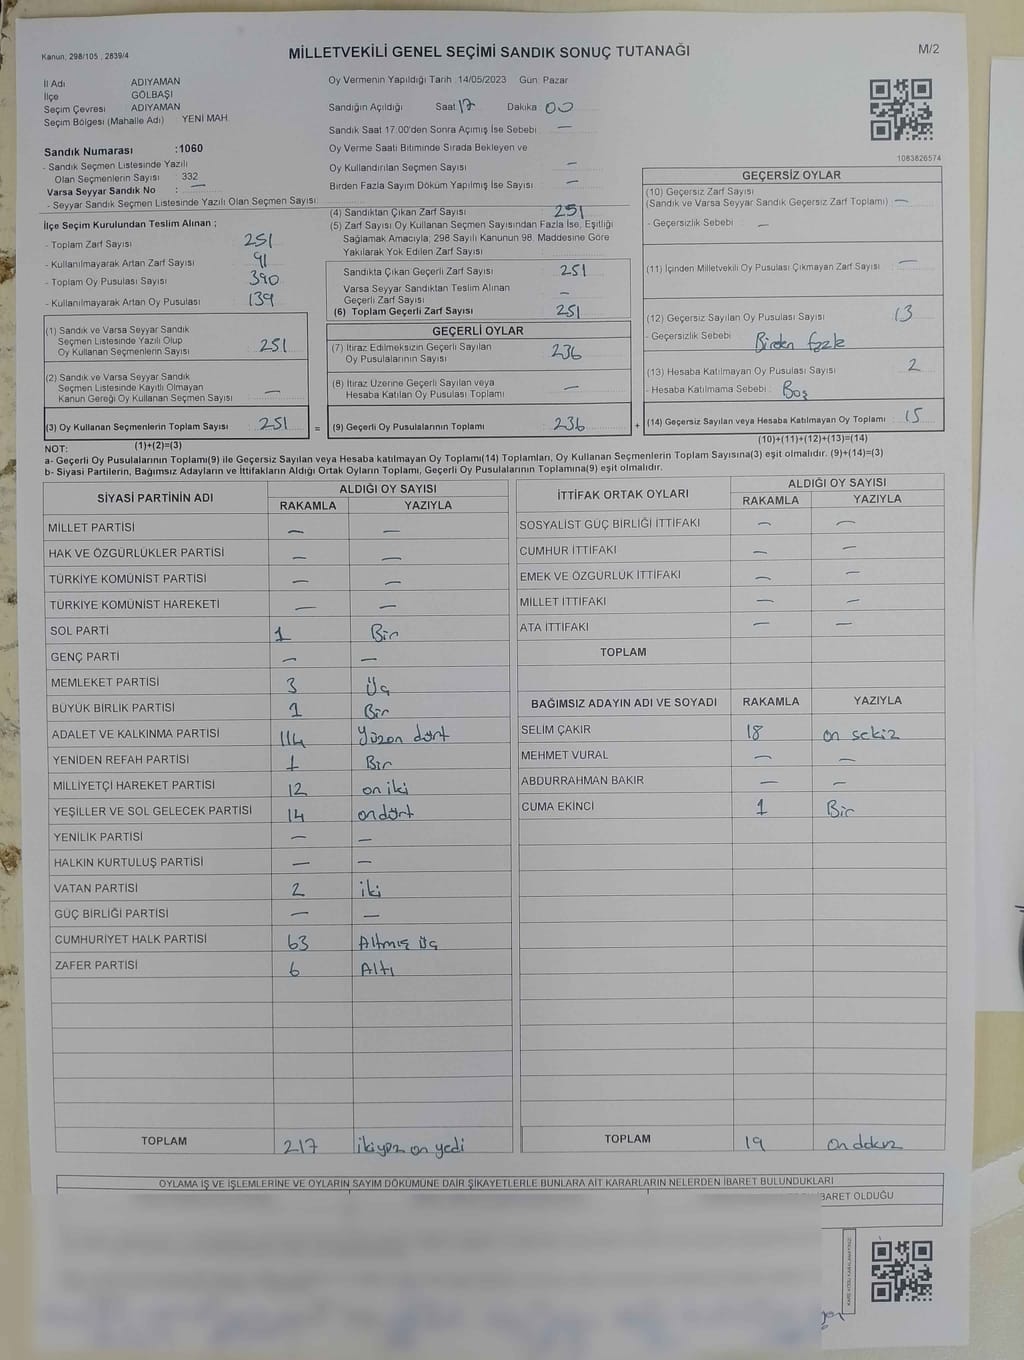 Kanun; 298/105 , 2839/4
MİLLETVEKİLİ GENEL SEÇİMİ SANDIK SONUÇ TUTANAĞI
M/2
İl Adı ADIYAMAN
İlçe GÖLBAŞI
Seçim Çevresi ADIYAMAN
Seçim Bölgesi (Mahalle Adı) YENİ MAH.
Oy Vermenin Yapıldığı Tarih :14/05/2023 Gün: Pazar
Sandığın Açıldığı Saat 17 Dakika 00
Sandık Saat 17.00'den Sonra Açımış İse Sebebi : —
Oy Verme Saati Bitiminde Sırada Bekleyen ve
Oy Kullandırılan Seçmen Sayısı —
Birden Fazla Sayım Döküm Yapılmış İse Sayısı : —
1083826574
Sandık Numarası :1060
- Sandık Seçmen Listesinde Yazılı
Olan Seçmenlerin Sayısı : 332
Varsa Seyyar Sandık No : —
- Seyyar Sandık Seçmen Listesinde Yazılı Olan Seçmen Sayısı:
İlçe Seçim Kurulundan Teslim Alınan ;
- Toplam Zarf Sayısı 251
- Kullanılmayarak Artan Zarf Sayısı 91
- Toplam Oy Pusulası Sayısı 390
- Kullanılmayarak Artan Oy Pusulası 139
(1) Sandık ve Varsa Seyyar Sandık
Seçmen Listesinde Yazılı Olup
Oy Kullanan Seçmenlerin Sayısı 251
(2) Sandık ve Varsa Seyyar Sandık
Seçmen Listesinde Kayıtlı Olmayan
Kanun Gereği Oy Kullanan Seçmen Sayısı —
(3) Oy Kullanan Seçmenlerin Toplam Sayısı 251 =
(1)+(2)=(3)
(4) Sandıktan Çıkan Zarf Sayısı 251
(5) Zarf Sayısı Oy Kullanan Seçmen Sayısından Fazla İse, Eşitliği
Sağlamak Amacıyla; 298 Sayılı Kanunun 98. Maddesine Göre
Yakılarak Yok Edilen Zarf Sayısı
Sandıkta Çıkan Geçerli Zarf Sayısı 251
Varsa Seyyar Sandıktan Teslim Alınan
Geçerli Zarf Sayısı —
(6) Toplam Geçerli Zarf Sayısı 251
GEÇERLİ OYLAR
(7) İtiraz Edilmeksizin Geçerli Sayılan
Oy Pusulalarının Sayısı 236
(8) İtiraz Üzerine Geçerli Sayılan veya
Hesaba Katılan Oy Pusulası Toplamı —
(9) Geçerli Oy Pusulalarının Toplamı 236 +
GEÇERSİZ OYLAR
(10) Geçersiz Zarf Sayısı
(Sandık ve Varsa Seyyar Sandık Geçersiz Zarf Toplamı) —
- Geçersizlik Sebebi : —
(11) İçinden Milletvekili Oy Pusulası Çıkmayan Zarf Sayısı —
(12) Geçersiz Sayılan Oy Pusulası Sayısı 13
- Geçersizlik Sebebi : Birden fazla
(13) Hesaba Katılmayan Oy Pusulası Sayısı 2
- Hesaba Katılmama Sebebi : Boş
(14) Geçersiz Sayılan veya Hesaba Katılmayan Oy Toplamı 15
(10)+(11)+(12)+(13)=(14)
NOT:
a- Geçerli Oy Pusulalarının Toplamı(9) ile Geçersiz Sayılan veya Hesaba katılmayan Oy Toplamı(14) Toplamları, Oy Kullanan Seçmenlerin Toplam Sayısına(3) eşit olmalıdır. (9)+(14)=(3)
b- Siyasi Partilerin, Bağımsız Adayların ve İttifakların Aldığı Ortak Oyların Toplamı, Geçerli Oy Pusulalarının Toplamına(9) eşit olmalıdır.
SİYASİ PARTİNİN ADI ALDIĞI OY SAYISI
RAKAMLA YAZIYLA
MİLLET PARTİSİ — —
HAK VE ÖZGÜRLÜKLER PARTİSİ — —
TÜRKİYE KOMÜNİST PARTİSİ — —
TÜRKİYE KOMÜNİST HAREKETİ — —
SOL PARTİ 1 Bir
GENÇ PARTİ — —
MEMLEKET PARTİSİ 3 Üç
BÜYÜK BİRLİK PARTİSİ 1 Bir
ADALET VE KALKINMA PARTİSİ 114 Yüzon dört
YENİDEN REFAH PARTİSİ 1 Bir
MİLLİYETÇİ HAREKET PARTİSİ 12 on iki
YEŞİLLER VE SOL GELECEK PARTİSİ 14 ondört
YENİLİK PARTİSİ — —
HALKIN KURTULUŞ PARTİSİ — —
VATAN PARTİSİ 2 iki
GÜÇ BİRLİĞİ PARTİSİ — —
CUMHURİYET HALK PARTİSİ 63 Altmış üç
ZAFER PARTİSİ 6 Altı
TOPLAM 217 ikiyüz on yedi
İTTİFAK ORTAK OYLARI ALDIĞI OY SAYISI
RAKAMLA YAZIYLA
SOSYALİST GÜÇ BİRLİĞİ İTTİFAKI — —
CUMHUR İTTİFAKI — —
EMEK VE ÖZGÜRLÜK İTTİFAKI — —
MİLLET İTTİFAKI — —
ATA İTTİFAKI — —
TOPLAM
BAĞIMSIZ ADAYIN ADI VE SOYADI RAKAMLA YAZIYLA
SELİM ÇAKIR 18 on sekiz
MEHMET VURAL — —
ABDURRAHMAN BAKIR — —
CUMA EKİNCİ 1 Bir
TOPLAM 19
OYLAMA İŞ VE İŞLEMLERİNE VE OYLARIN SAYIM DÖKÜMÜNE DAİR ŞİKAYETLERLE BUNLARA AİT KARARLARIN NELERDEN İBARET BULUNDUKLARI
BARET OLDUĞU